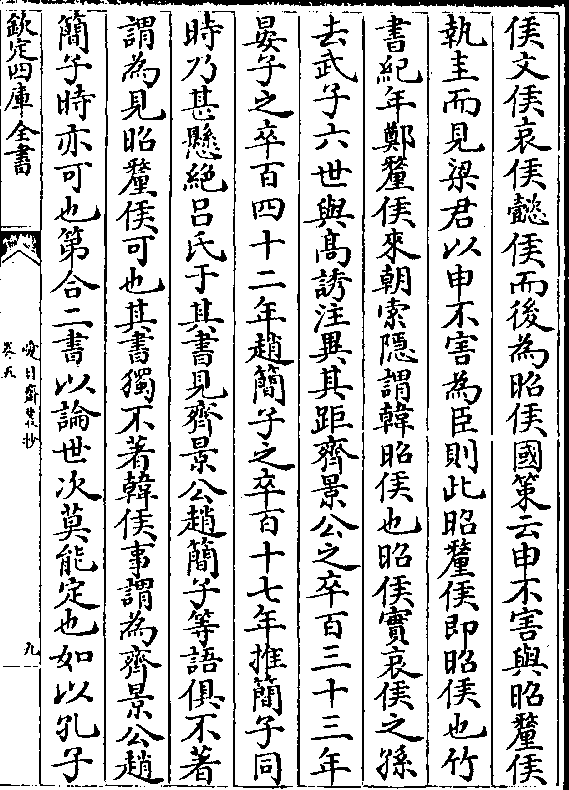 侯文侯哀侯懿侯而後為昭侯國策云申不害與昭釐侯
執圭而見梁君以申不害為臣則此昭釐侯即昭侯也竹
書紀年鄭釐侯來朝索隱謂韓昭侯也昭侯實哀侯之孫
去武子六世與高誘注異其距齊景公之卒百三十三年
晏子之卒百四十二年趙簡子之卒百十七年推簡子同
時乃甚懸絕呂氏于其書見齊景公趙簡子等語俱不著
謂為見昭釐侯可也其書獨不著韓侯事謂為齊景公趙
簡子時亦可也第合二書以論世次莫能定也如以孔子
欽定四庫全書
愛日齋叢抄
卷五
九